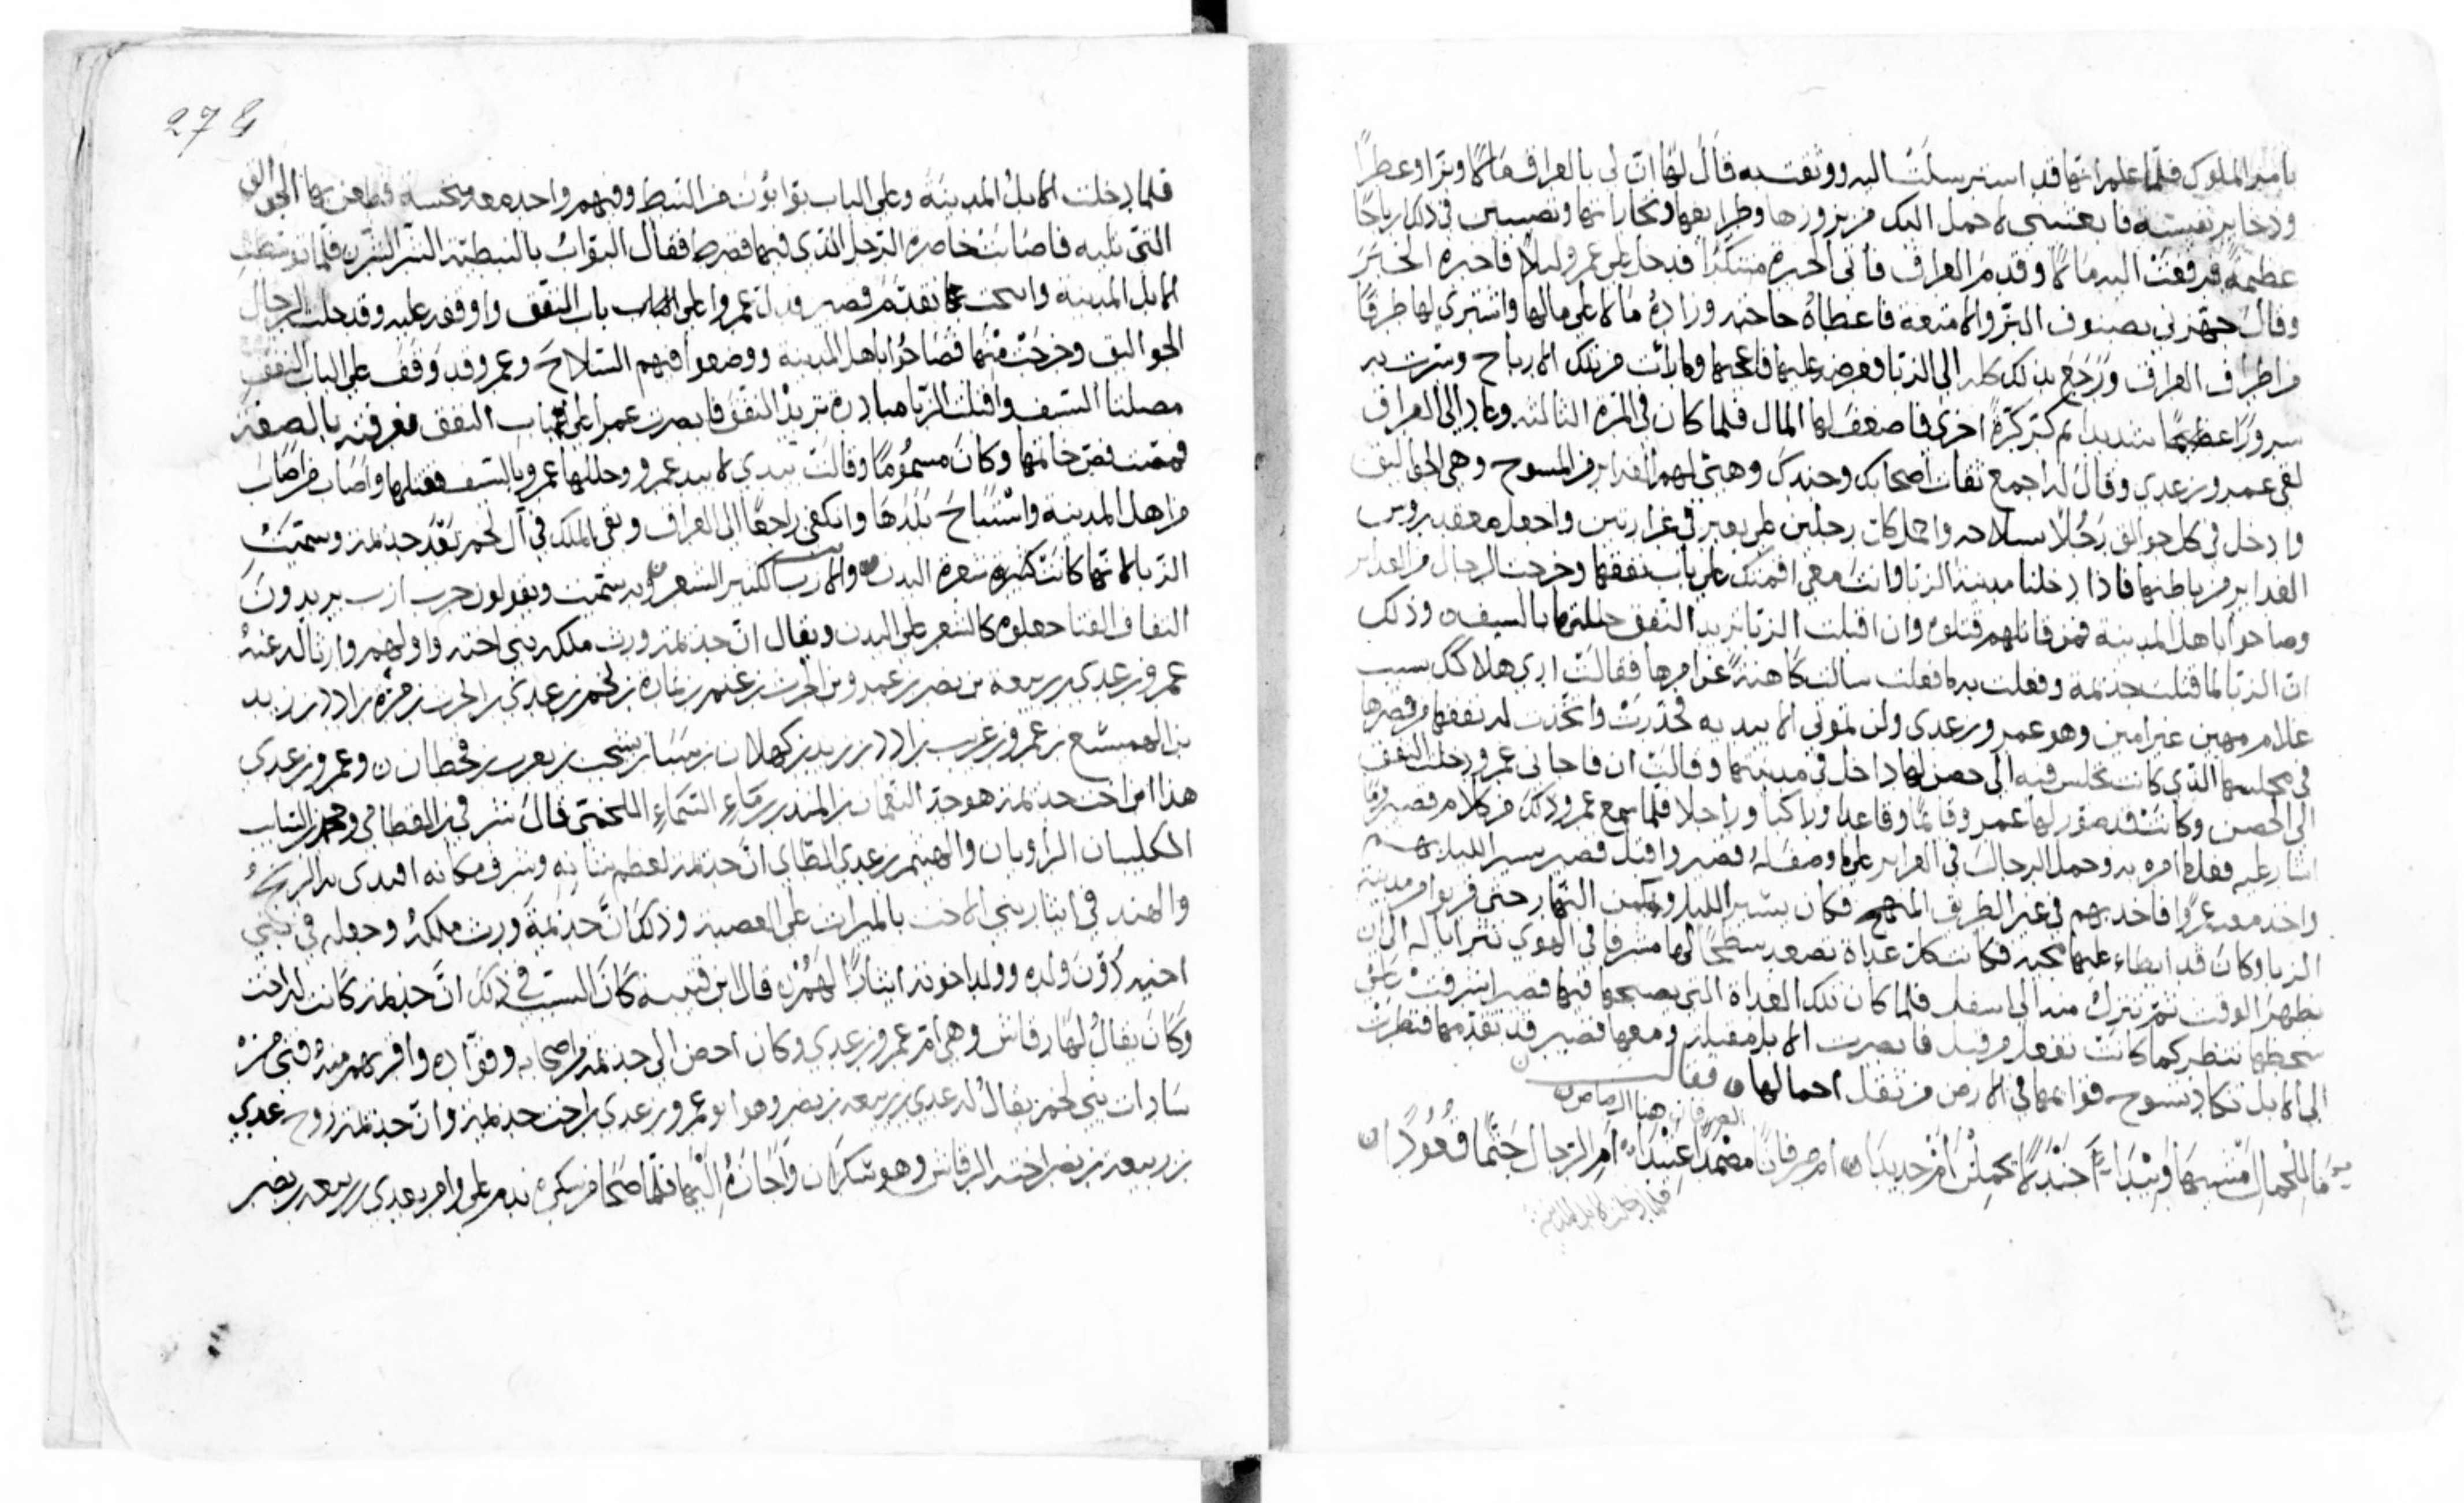 يامير الملوك فلما علم انها قد استرسلت اليه ووثقت به قال لها ان لى بالعراق مالا وبزا وعطرا
وذخاير نفيسة فابعثينى لاحمل اليك من بزوزها وطرايفها وتجاراتها وتصيبين فى ذلك ارباحا
عظيمة فدفعت اليه مالا وقدم العراق فاتى الحيرة متنكرا فدخل على عمرو ليلا فاخبره الخبر
وقال جهزنى بصنوف البز والامتعة فاعطاه حاجته وزاده مالا على مالها واشترى لها طرفا
من اطراف العراق ورجع بذلك كله الى الزبا فعرضه عليها فاعجبها ما رأت من تلك الارباح وسرت به
سرورا عظيما شديدا ثم كر كرة اخرى فاضعف لها المال فلما كان فى المرة الثالثة وعاد الى العراق
لقى عمرو بن عدى وقال له اجمع ثقات اصحابك وجندك وهيئ لهم الغداير من المسوح وهى الجواليق
وادخل فى كل جوالق رجلا بسلاحه واحمل كل رجلين على بعير فى غرارتين واجعل معقد رووس
الغداير من باطنها فاذا دخلنا مدينة الزبا وانت معى اقمتك على باب نفقها وخرجت الرجال من الغداير
وصاحوا باهل المدينة فمن قاتلهم قتلوه وان اقبلت الزبا تريد النفق جللتها بالسيف وذلك
ان الزبا لما قتلت جذيمة وفعلت به ما فعلت سالت كاهنة عن امرها فقالت ارى هلاكك بسبب
غلام مهين غير امين وهو عمرو بن عدى ولن تموتى الا بيديه فحذرت واتخذت له نفقا من قصرها
فى مجلسها الذى كانت تجلس فيه الى حصن لها داخل فى مدينتها وقالت ان فاجانى عمرو دخلت النفق
الى الحصن وكانت قد صور لها عمرو قائما وقاعدا وراكبا وراجلا فلما سمع عمرو ذلك من كلام قصير وما
اشار عليه فعله امره به وحمل الرجال فى الغراير على ما وصف له قصير واقبل قصير يسير الليل بهم
واخذ معه عمرا فاخذ بهم فى غير الطريق المنهج فكان يسير الليل ويكمن النهار حتى قربوا من مدينة
الزبا وكان قد ابطاء عليها مجيه فكانت كل غداة تصعد سطحا لها مشرفا فى الهوى تترايا له الى ان
يظهر الوقت ثم تنزل منه الى اسفل فلما كان تلك الغداة التى يصبحها فيها قصير اشرفت على
سطحها تنظر كما كانت تفعل من قبل فابصرت الابل مقبلة ومعها قصير قد تقدمها فنظرت
الى الابل تكاد تسوخ قوائمها فى الارض من ثقل احمالها فقالت
الصرفان هنا الرصاص
ما للجمال مشيها وئيدا اجندلا يحملن ام حديدا ام صرفانا مضمدا عتيدا ام الرجال جثما قعودا
فلما دخلت الابل المدينة
278
فلما دخلت الابل المدينة وعلى الباب بوابون من النبط وفيهم واحد معه منخسة فطعن بها الجوالق
التى تليه فاصابت خاصرة الرجل الذى فيها فضرط فقال البواب بالنبطية الشر الشر فلما توسطت
الابل المدينة وانيخت تقدم قصير ودل عمروا على باب النفق واوقفه عليه وقد حلت الرجال
الجواليق وخرجت منها فصاحوا باهل المدينة ووضعوا فيهم السلاح وعمرو قد وقف على الباب النفق
مصلتا السيف واقبلت الزبا مبادرة تريد النفق فابصرت عمرا على باب النفق فعرفته بالصفة
فمصت فص خاتمها وكان مسموما وقالت بيدى لا بيد عمرو وجللها عمرو بالسيف فقتلها واصاب من اصاب
من اهل المدينة واستباح بلدها وانكفى راجعا الى العراق وبقى الملك فى آل لخم بعد جذيمة وسميت
الزبا لانها كانت كثيرة شعرة البدن والازب الكثير الشعر وبه سميت ويقولون حرب ازب يريدون
التفاف القنا جعلوه كالشعر على البدن ويقال ان جذيمة ورث ملكه بنى اخته واولهم وارثا له عنه
عمرو بن عدى بن ربيعة بن نصر بن عمرو بن الحرث بن عنم بن نمارة بن لخم بن عدى بن الحرث بن مرة بن ادد بن زيد
بن الهميسع بن عمرو بن عريب بن ادد بن زيد بن كهلان بن سبا بن يشجب بن يعرب بن قحطان وعمرو بن عدى
هذا ابن اخت جذيمة هو جد النعمان بن المنذر بن ماء السماء اللخمى قال شرقى بن القطامى ومحمد بن السايب
الكلبيان الراويان والهيثم بن عدى الطاى ان جذيمة لعظم شانه وشرف مكانه اقتدى به الزنج
والهند فى ايثار بنى الاخت بالميراث على العصبة وذلك ان جذيمة ورث ملكه وجعله فى بنى
اخته دون ولده وولد اخوته ايثارا لهم قال ابن قتيبة كان السبب فى ذلك ان جذيمة كانت له اخت
وكان يقال لها رقاش وهى ام عمرو بن عدى وكان احص الى جذيمة من اصحابه وقواده واقربهم منه فتى من
سادات بنى لخم يقال له عدى بن ربيعة بن نصر وهو ابو عمرو بن عدى بن اخت جذيمة وان جذيمة زوج عدى
بن ربيعة بن نصر اخته الرقاش وهو سكران واجازه اليها فلما صحا من سكره ندم على وامر بعدى بن ربيعة بن نصر